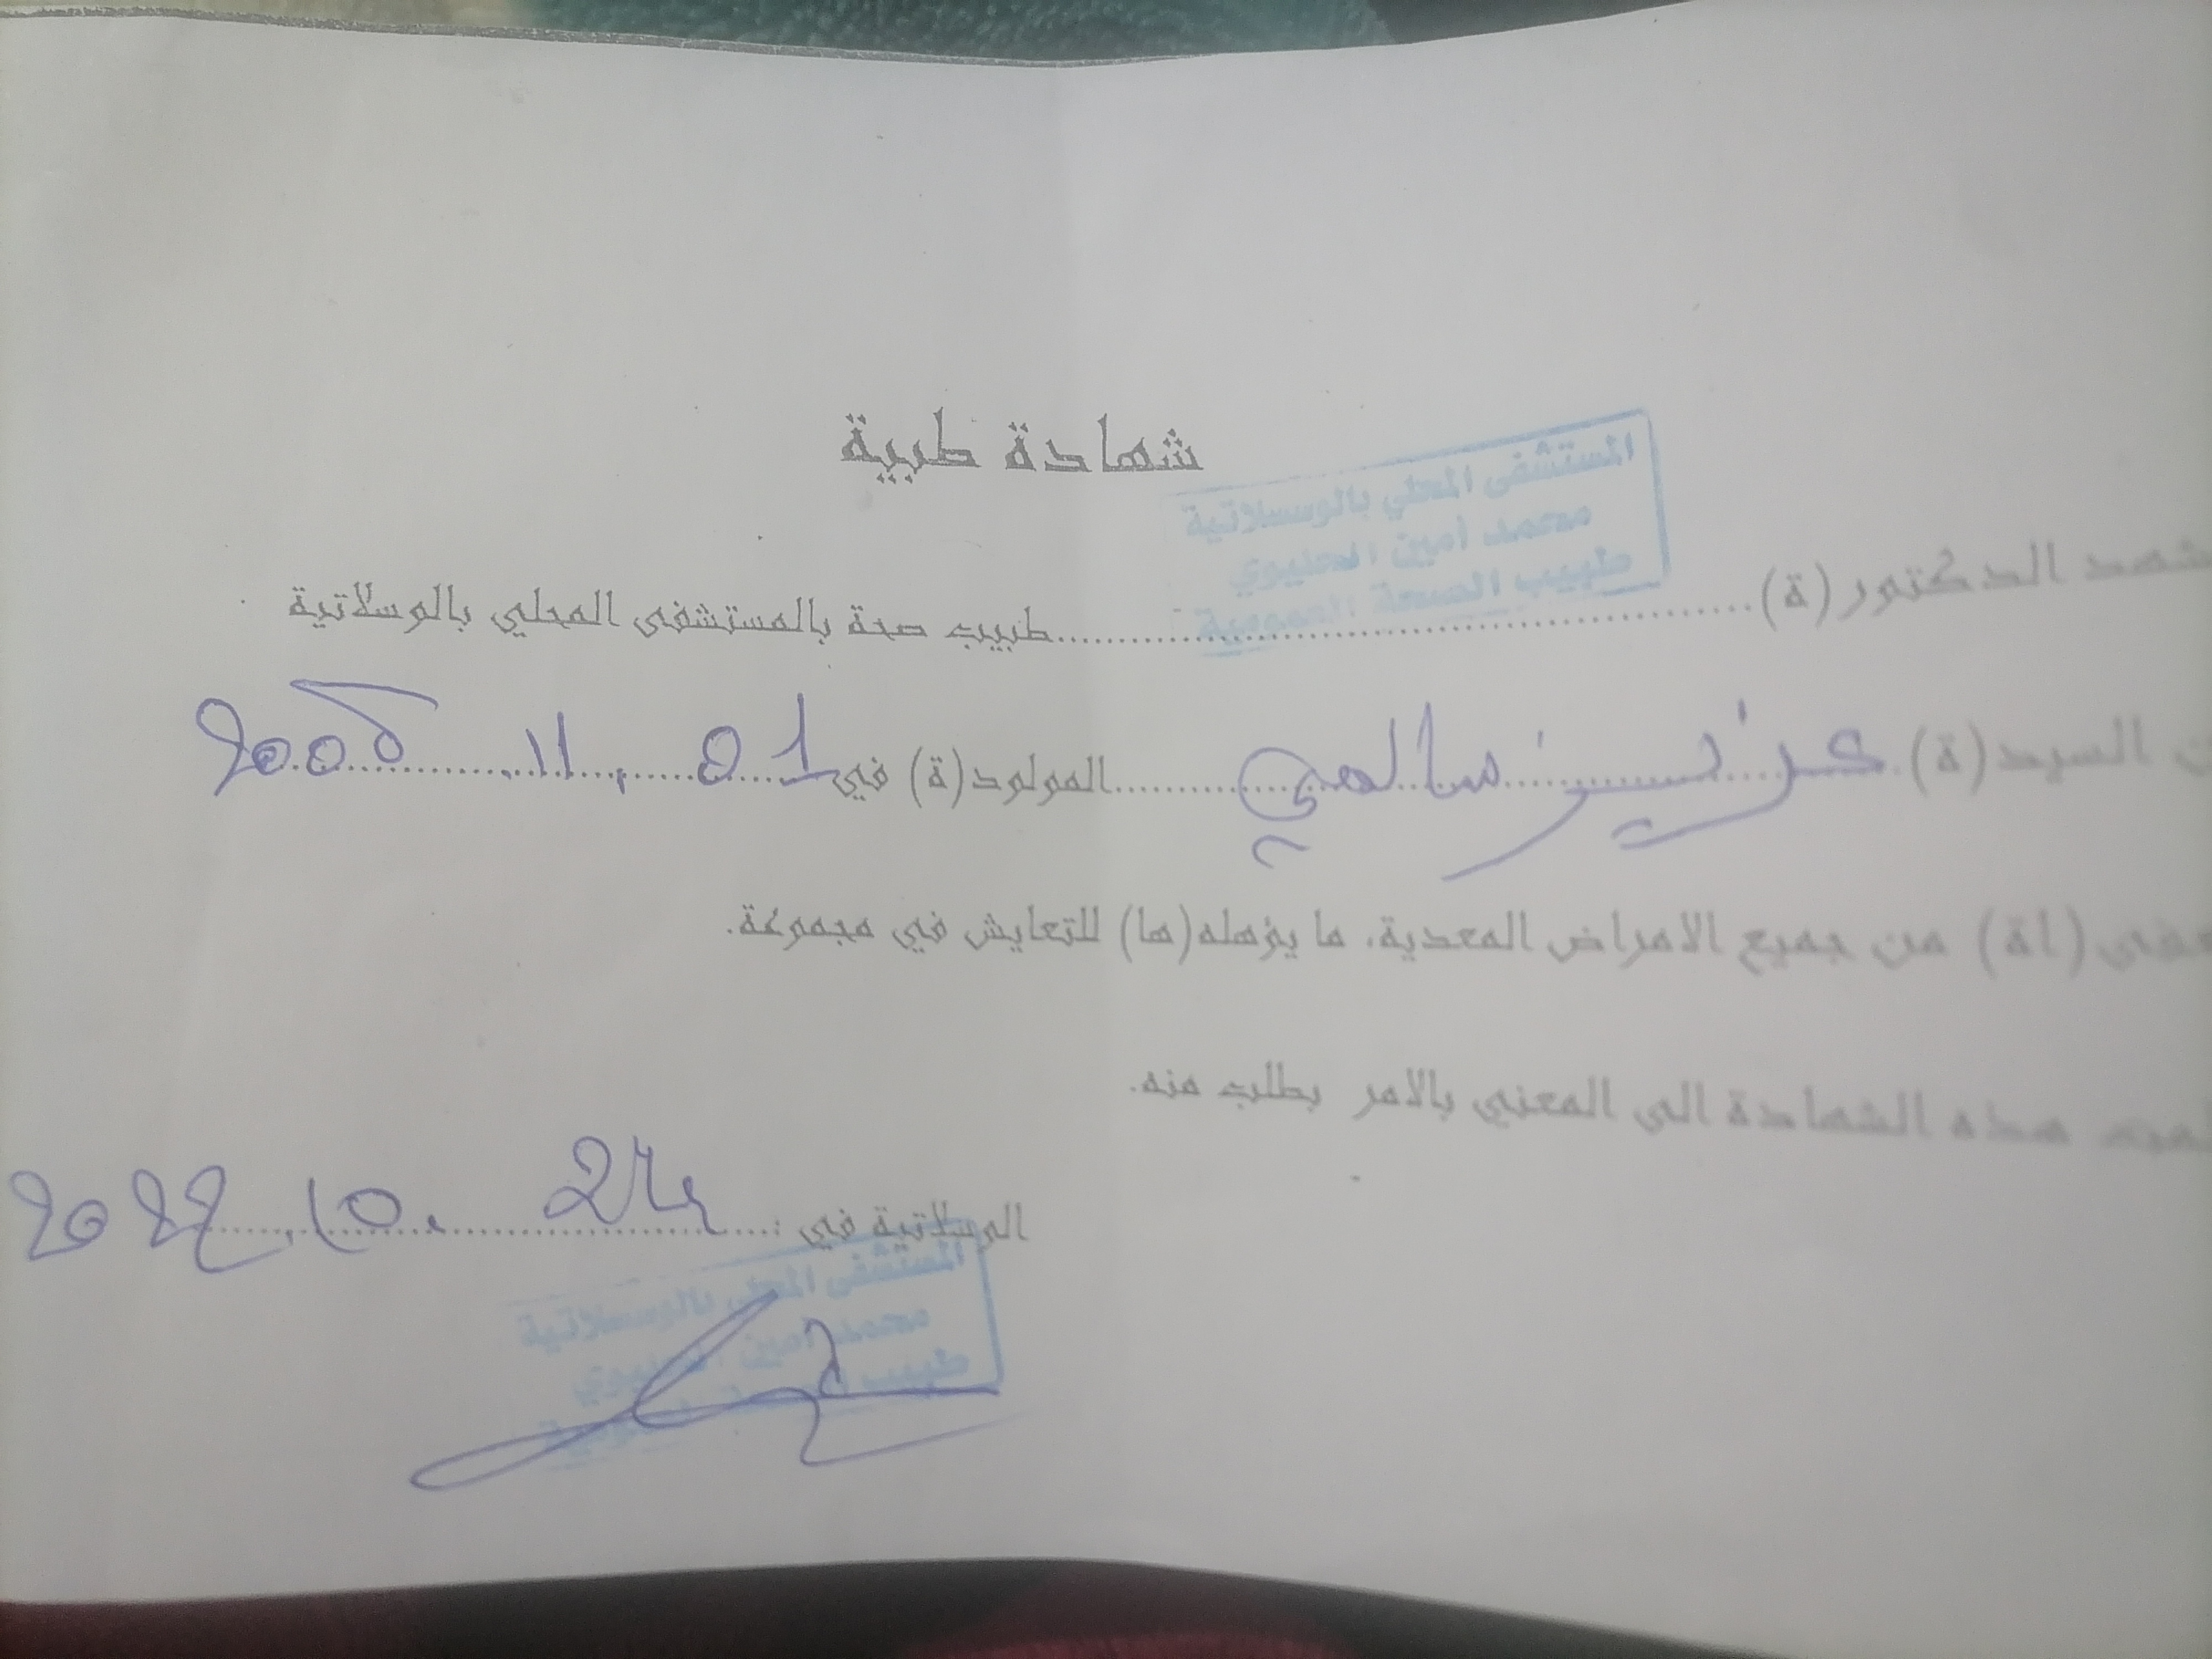 شهادة طبية
المستشفى المحلي بالوسلاتية
محمد أمين الحليوي
طبيب الصحة العمومية
يشهد الدكتور(ة)........................طبيب صحة بالمستشفى المحلي بالوسلاتية
ن السيد(ة) عزيز سالمي المولود(ة) في 01 . 11 . 2005
معفى(اة) من جميع الامراض المعدية، ما يؤهله(ها) للتعايش في مجموعة.
هذه الشهادة الى المعني بالامر بطلب منه.
الوسلاتية في : 24 . 10 . 2022
المستشفى المحلي بالوسلاتية
محمد أمين الحليوي
طبيب